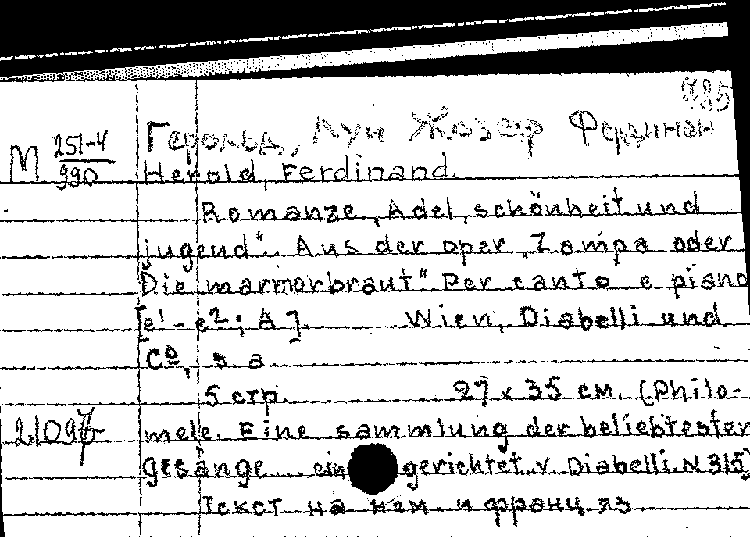 985
Герольд, Луи Жозеф Фердинан
М 251-4/990
Herold, Ferdinand.
Romanze „Adel, schönheit und
jugend“. Aus der oper „Zampa oder
Die marmorbraut“ Per canto e piano
[e¹-e²; A]. Wien, Diabelli und
Cº, s a.
5 стр. 27 x 35 см. (Philo-
mele. Eine sammlung der beliebtesten
gesänge ein gerichtet v. Diabelli. N 315)
Текст на нем. и франц. яз.